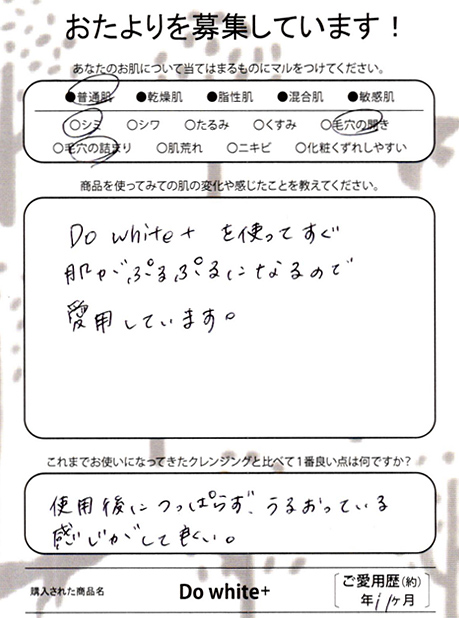 おたよりを募集しています！
あなたのお肌について当てはまるものにマルをつけてください。
●普通肌 ●乾燥肌 ●脂性肌 ●混合肌 ●敏感肌
○シミ ○シワ ○たるみ ○くすみ ○毛穴の開き
○毛穴の詰まり ○肌荒れ ○ニキビ ○化粧くずれしやすい
商品を使ってみての肌の変化や感じたことを教えてください。
Do white+ を使ってすぐ
肌がぷるぷるになるので
愛用しています。
これまでお使いになってきたクレンジングと比べて1番良い点は何ですか？
使用後につっぱらず、うるおっている
感じがして良い。
購入された商品名 Do white+ ご愛用歴(約)
年 11ヶ月